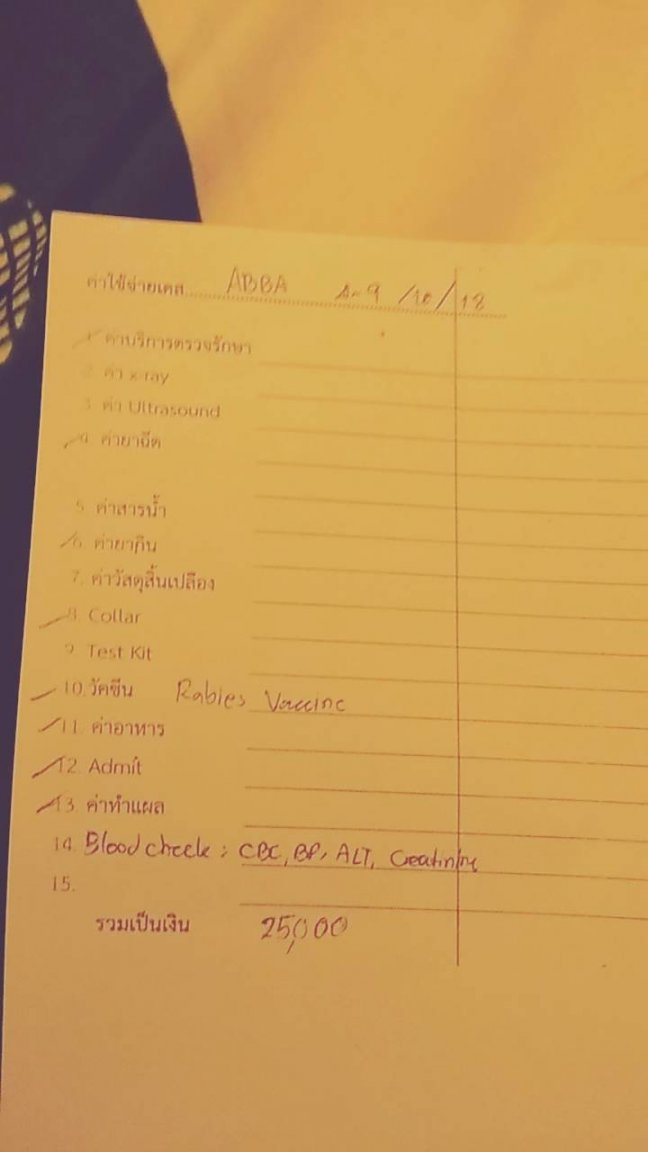 ค่าใช้จ่ายเคส ABBA 9/10/18
1. ค่าบริการตรวจรักษา
2. ค่า x-ray
3. ค่า Ultrasound
4. ค่ายาฉีด
5. ค่าสารน้ำ
6. ค่ายากิน
7. ค่าวัสดุสิ้นเปลือง
8. Collar
9. Test Kit
10. วัคซีน Rabies Vaccine
11. ค่าอาหาร
12. Admit
13. ค่าทำแผล
14. Blood check : CBC, BP, ALT, Creatinine
15.
รวมเป็นเงิน 25,000